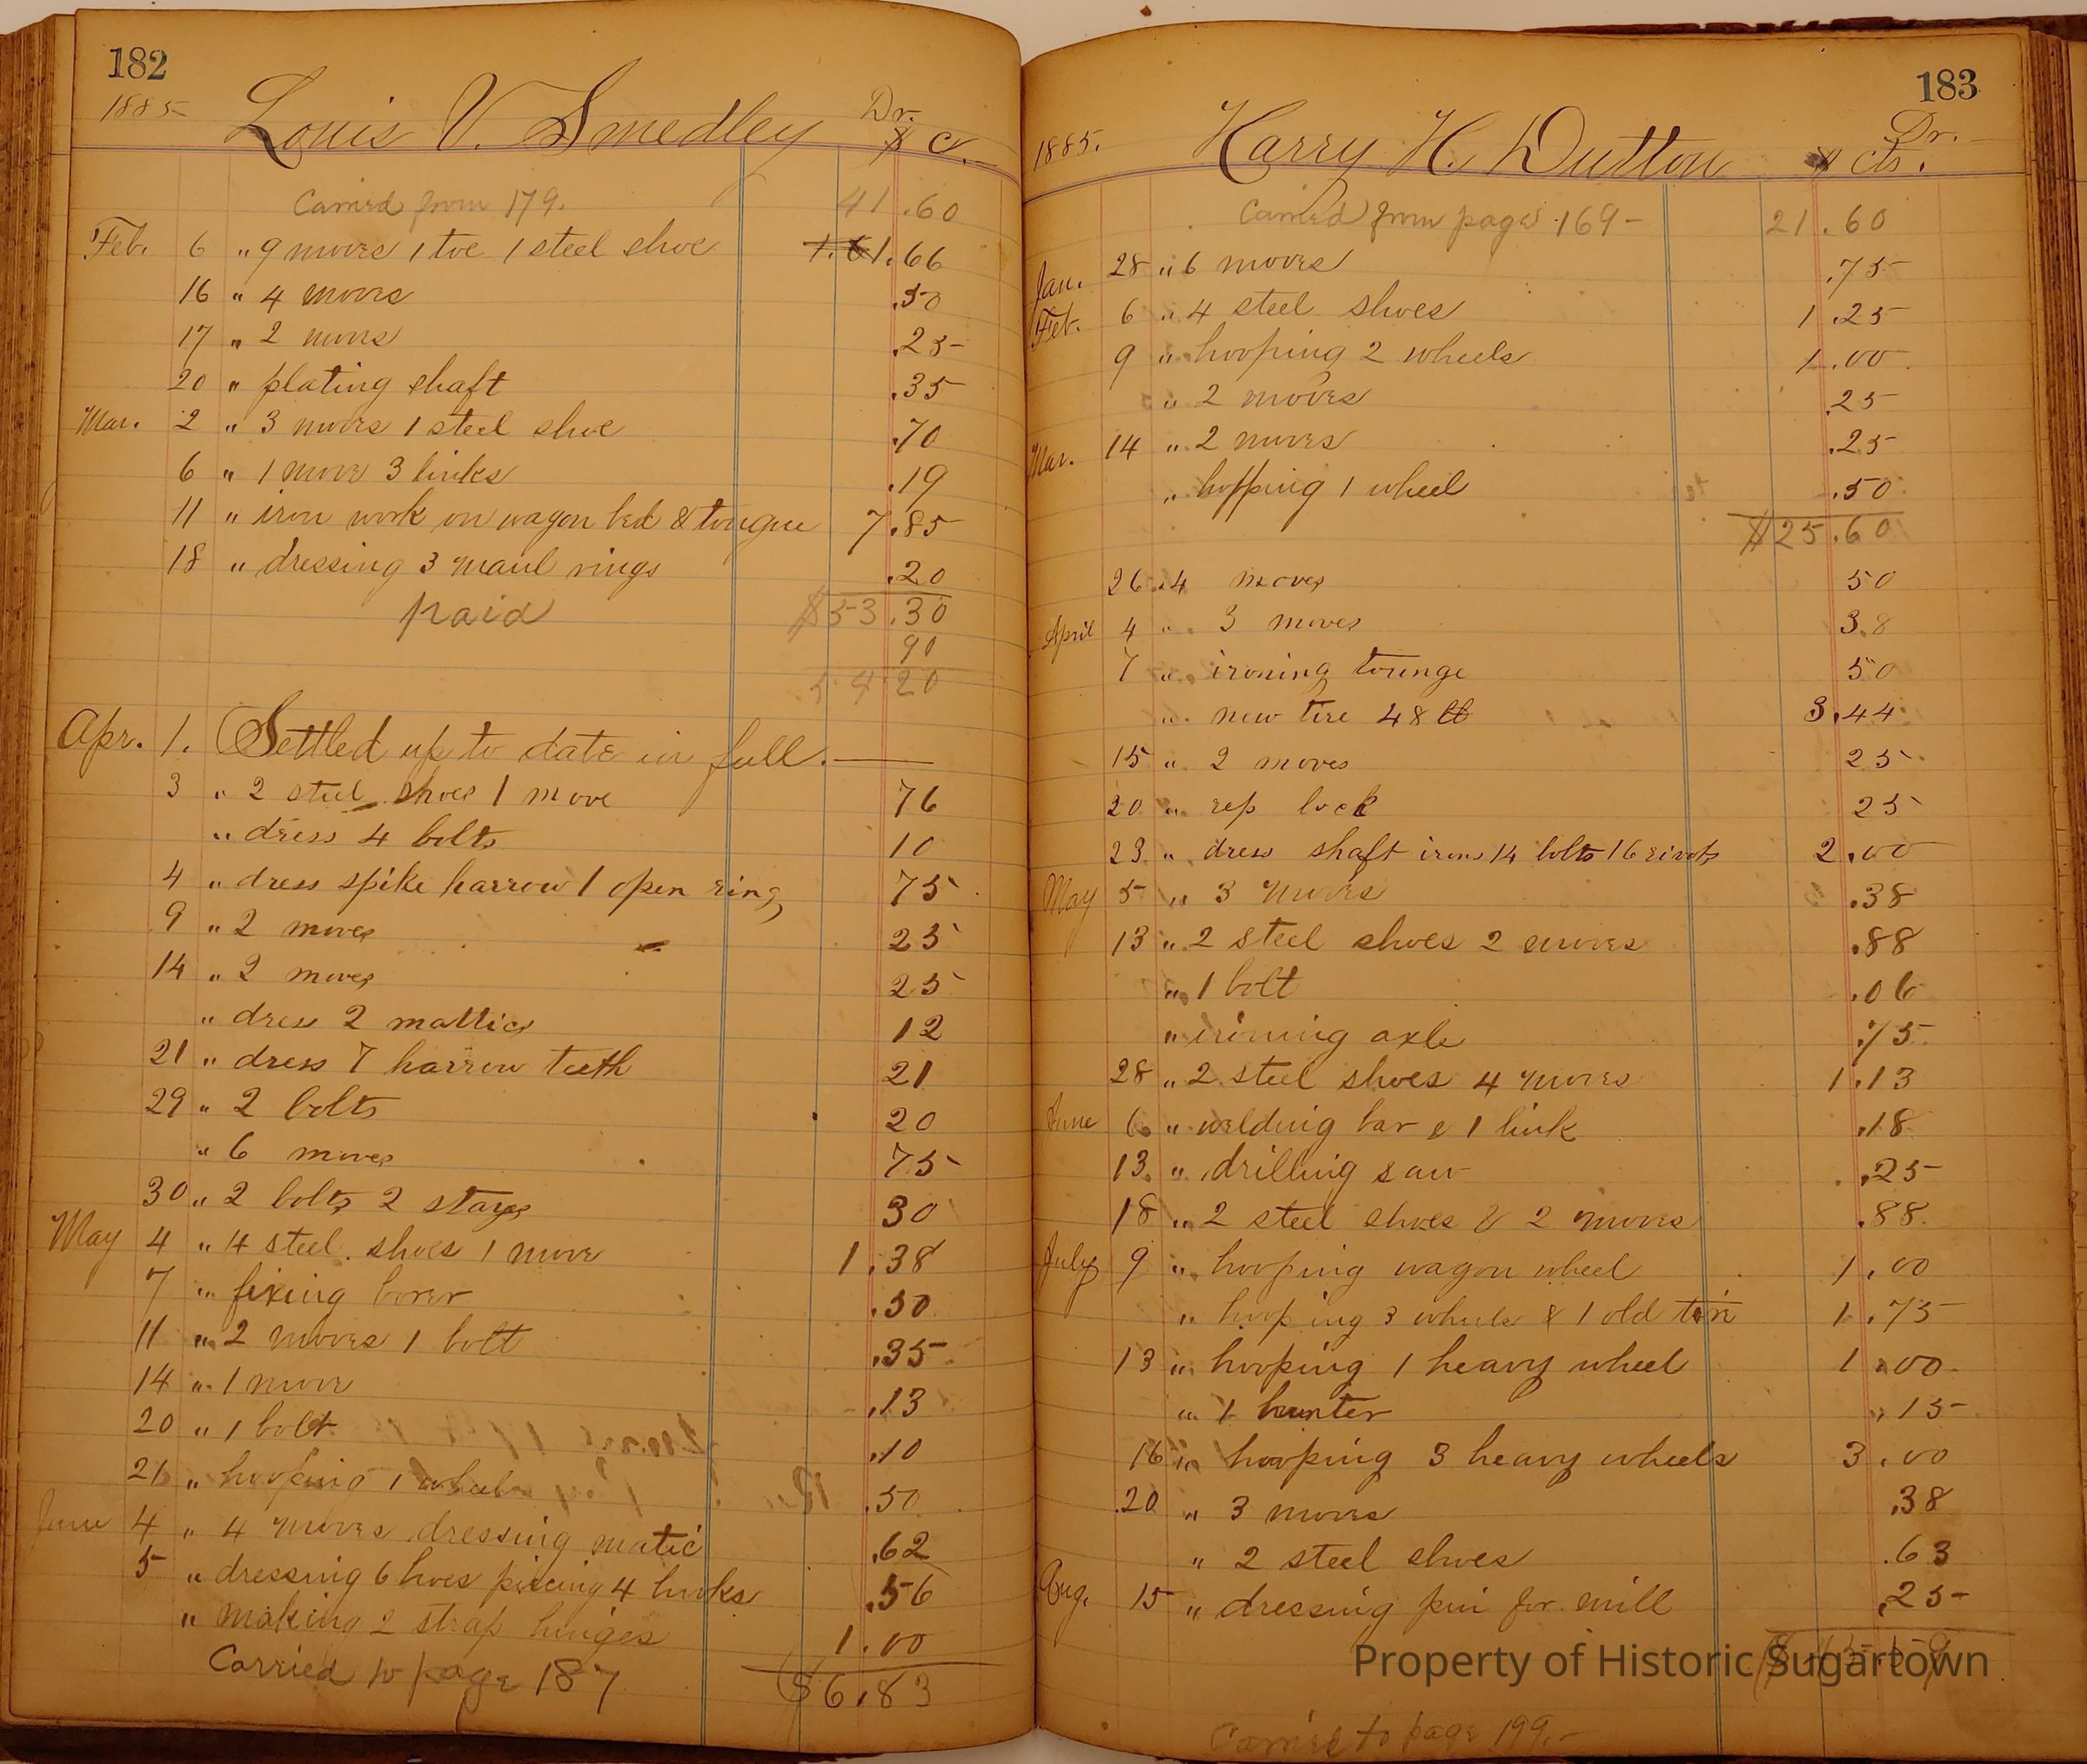 182
1885 Louis V. Smedley Dr.
$ c.
Carried from 179. 41.60
Feb. 6 " 9 moves 1 toe 1 steel shoe 1.66
16 " 4 moves .50
17 " 2 moves .25
20 " plating shaft .35
Mar. 2 " 3 moves 1 steel shoe .70
6 " 1 move 3 links .19
11 " iron work on wagon bed & tongue 7.85
18 " dressing 3 maul rings .20
paid $53.30
90
54 20
Apr. 1. Settled up to date in full.
3 " 2 steel shoes 1 move 76
" dress 4 bolts 10
4 " dress spike harrow 1 open ring 75
9 " 2 moves 25
14 " 2 moves 25
" dress 2 mattics 12
21 " dress 7 harrow teeth 21
29 " 2 bolts 20
" 6 moves 75
30 " 2 bolts 2 stays 30
May 4 " 4 steel shoes 1 move 1.38
7 " fixing borer .50
11 " 2 moves 1 bolt .35
14 " 1 move .13
20 " 1 bolt .10
21 " hooping 1 wheel .50
June 4 " 4 moves dressing matic .62
5 " dressing 6 hoes piecing 4 hooks .56
" making 2 strap hinges 1.00
Carried to page 187 $6.83
183
1885. Harry H. Dutton Dr.
$ cts.
Carried from page 169- 21.60
Jan. 28 " 6 moves .75
Feb. 6 " 4 steel shoes 1.25
9 " hooping 2 wheels 1.00
" 2 moves .25
Mar. 14 " 2 moves .25
" hopping 1 wheel .50
$25.60
26 " 4 moves 50
April 4 " 3 moves 3.8
7 " ironing tounge 50
" new tire 48 lb 3.44
15 " 2 moves 25
20 " rep lock 25
23 " dress shaft irons 14 bolts 16 rivots 2.00
May 5 " 3 moves .38
13 " 2 steel shoes 2 moves .88
" 1 bolt .06
" ironing axle .75
28 " 2 steel shoes 4 moves 1.13
June 6 " welding bar & 1 link .18
13. " drilling saw .25
18 " 2 steel shoes & 2 moves .88
July 9 " hooping wagon wheel 1.00
" hooping 3 wheels & 1 old tire 1.75
13 " hooping 1 heavy wheel 1.00
" 1 .15
16 " hooping 3 heavy wheels 3.00
20 " 3 moves .38
" 2 steel shoes .63
Aug. 15 " dressing pin for mill .25
Property of Historic Sugartown
Carried to page 199.-